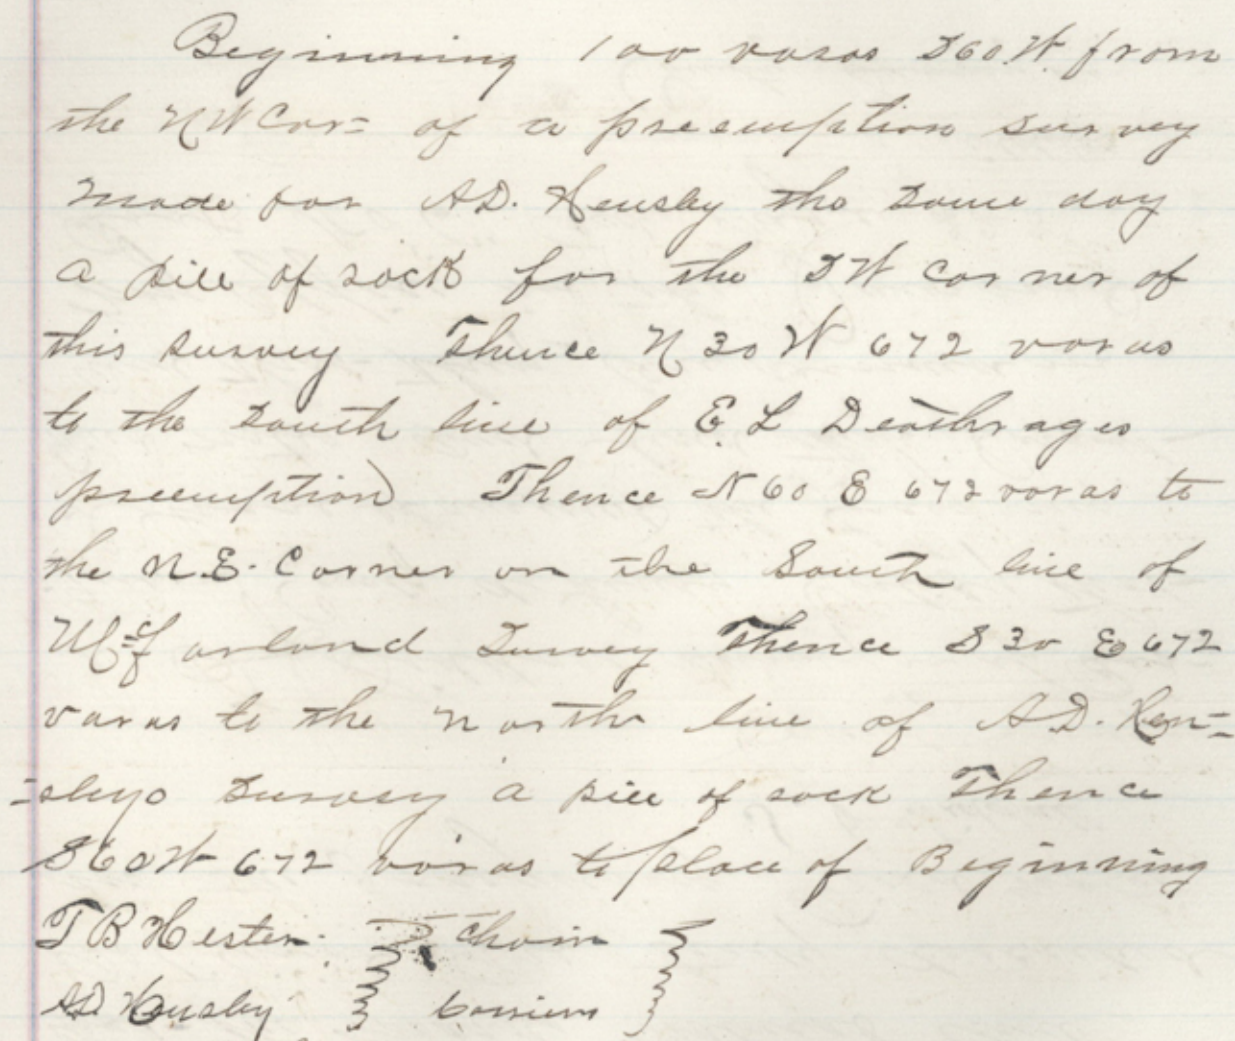 Beginning 100 varas S60W. from
the NW Cor= of a preemption survey
made for A.D. Hensley the same day
a pile of rock for the SW corner of
this survey Thence N 30 W 672 varas
to the South line of E. L Deathrages
preemption Thence N 60 E 672 varas to
the N.E. Corner on the South line of
McFarland Survey Thence S 30 E 672
varas to the North line of A.D. Hen=
=sleys Survey a pile of rock Thence
S60W 672 varas to place of Beginning
T B Hester. } Chain }
AD Hensley } carriers }